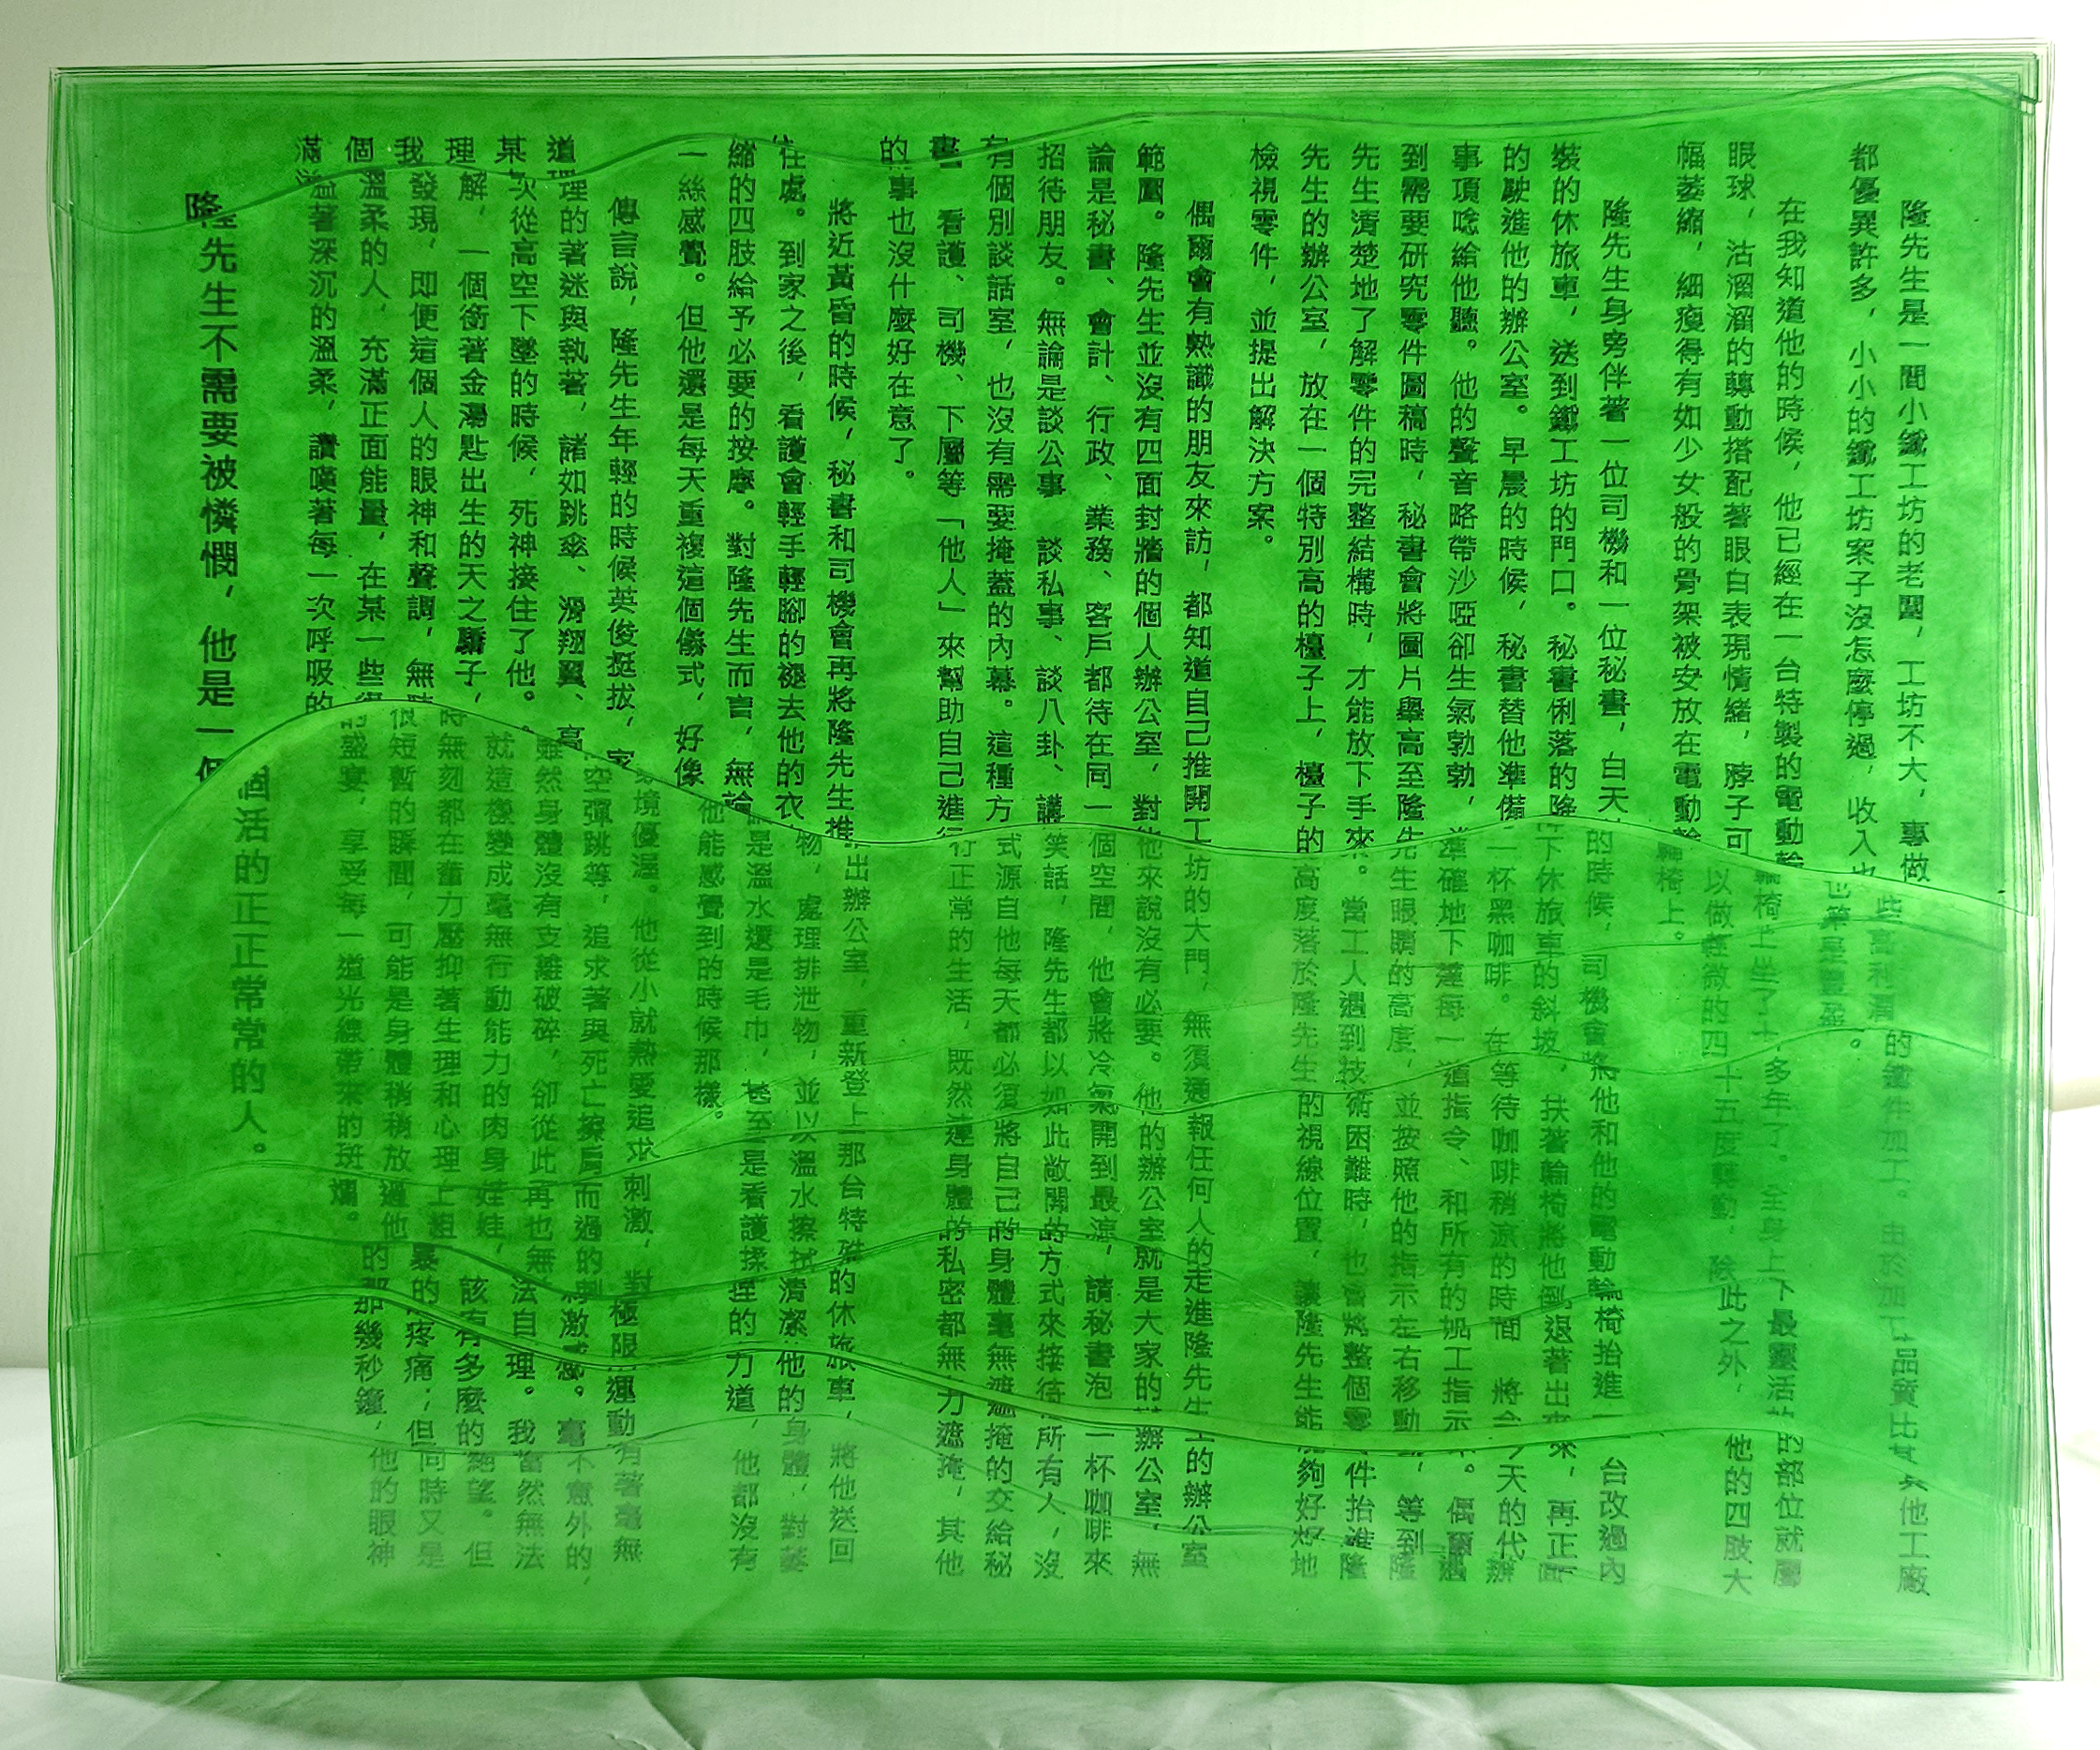 隆先生是一間小鐵工坊的老闆，工坊不大，專做一些高利潤的鐵件加工。由於加工品質比其他工廠
都優異許多，小小的鐵工坊案子沒怎麼停過，收入也算是豐盈。
在我知道他的時候，他已經在一台特製的電動輪椅上坐了十多年了。全身上下最靈活的部位就屬
眼球，沽溜溜的轉動搭配著眼白表現情緒，脖子可以做輕微的四十五度轉動，除此之外，他的四肢大
幅萎縮，細瘦得有如少女般的骨架被安放在電動輪椅上。
隆先生身旁伴著一位司機和一位秘書，白天的時候，司機會將他和他的電動輪椅抬進一台改過內
裝的休旅車，送到鐵工坊的門口。秘書俐落的降下休旅車的斜坡，扶著輪椅將他倒退著出來，再正面
的駛進他的辦公室。早晨的時候，秘書替他準備一杯黑咖啡。在等待咖啡稍涼的時間，將今天的代辦
事項唸給他聽。他的聲音略帶沙啞卻生氣勃勃，準確地下達每一道指令、和所有的施工指示。偶爾遇
到需要研究零件圖稿時，秘書會將圖片舉高至隆先生眼睛的高度，並按照他的指示左右移動，等到隆
先生清楚地了解零件的完整結構時，才能放下手來。當工人遇到技術困難時，也會將整個零件抬進隆
先生的辦公室，放在一個特別高的檯子上，檯子的高度落於隆先生的視線位置，讓隆先生能夠好好地
檢視零件，並提出解決方案。
偶爾會有熟識的朋友來訪，都知道自己推開工坊的大門，無須通報任何人的走進隆先生的辦公室
範圍。隆先生並沒有四面封牆的個人辦公室，對他來說沒有必要。他的辦公室就是大家的辦公室，無
論是秘書、會計、行政、業務、客戶都待在同一個空間，他會將冷氣開到最涼，請秘書泡一杯咖啡來
招待朋友。無論是談公事、談私事、談八卦、講笑話，隆先生都以如此敞開的方式來接待所有人，沒
有個別談話室，也沒有需要掩蓋的內幕。這種方式源自他每天都必須將自己的身體毫無遮掩的交給秘
書、看護、司機、下屬等「他人」來幫助自己進行正常的生活，既然連身體的私密都無力遮掩，其他
的事也沒什麼好在意了。
將近黃昏的時候，秘書和司機會再將隆先生推出辦公室，重新登上那台特殊的休旅車，將他送回
住處。到家之後，看護會輕手輕腳的褪去他的衣物，處理排泄物，並以溫水擦拭清潔他的身體，對萎
縮的四肢給予必要的按摩。對隆先生而言，無論是溫水還是毛巾，甚至是看護揉捏的力道，他都沒有
一絲感覺。但他還是每天重複這個儀式，好像他能感覺到的時候那樣。
傳言說，隆先生年輕的時候英俊挺拔，家境優渥。他從小就熱愛追求刺激，對極限運動有著毫無
道理的著迷與執著，諸如跳傘、滑翔翼、高空彈跳等，追求著與死亡擦肩而過的刺激感。毫不意外的，
某次從高空下墜的時候，死神接住了他。雖然身體沒有支離破碎，卻從此再也無法自理。我當然無法
理解，一個銜著金湯匙出生的天之驕子，就這樣變成毫無行動能力的肉身娃娃，該有多麼的絕望。但
我發現，即便這個人的眼神和聲調，無時無刻都在奮力壓抑著生理和心理上粗暴的疼痛；但同時又是
個溫柔的人，充滿正面能量，在某一些很短暫的瞬間，可能是身體稍稍放過他的那幾秒鐘，他的眼神
滿溢著深沉的溫柔，讚嘆著每一次呼吸的盛宴，享受每一道光線帶來的斑斕。
隆先生不需要被憐憫，他是一個活的正正常常的人。